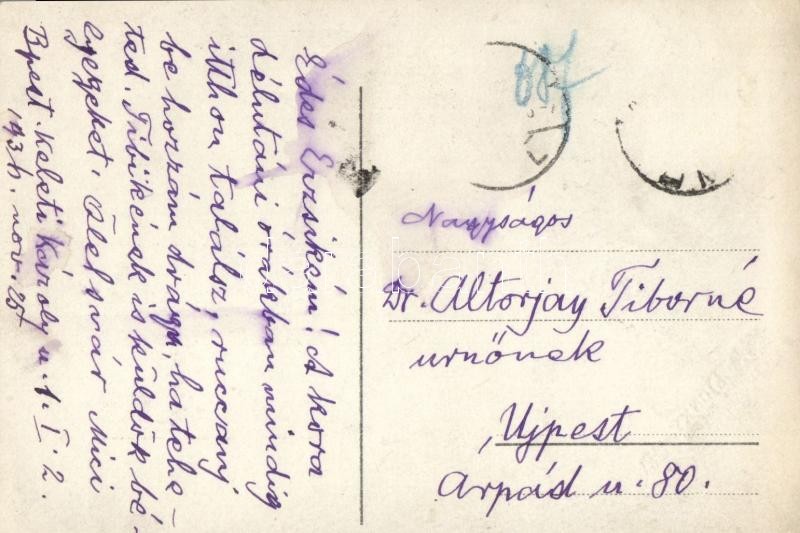 Édes Erzsikém! A kora
délutáni órákban mindig
itthon találsz, ruccanj
be hozzám drága, ha tehe-
ted. Tibikének is küldök bé-
lyegeket. Ölel s vár Mici
Bpest. Keleti Károly u. 1. I. 2.
193h. nov. 25
687
Nagyságos
Dr. Altorjay Tiborné
urnőnek
Ujpest
Árpád u. 80.